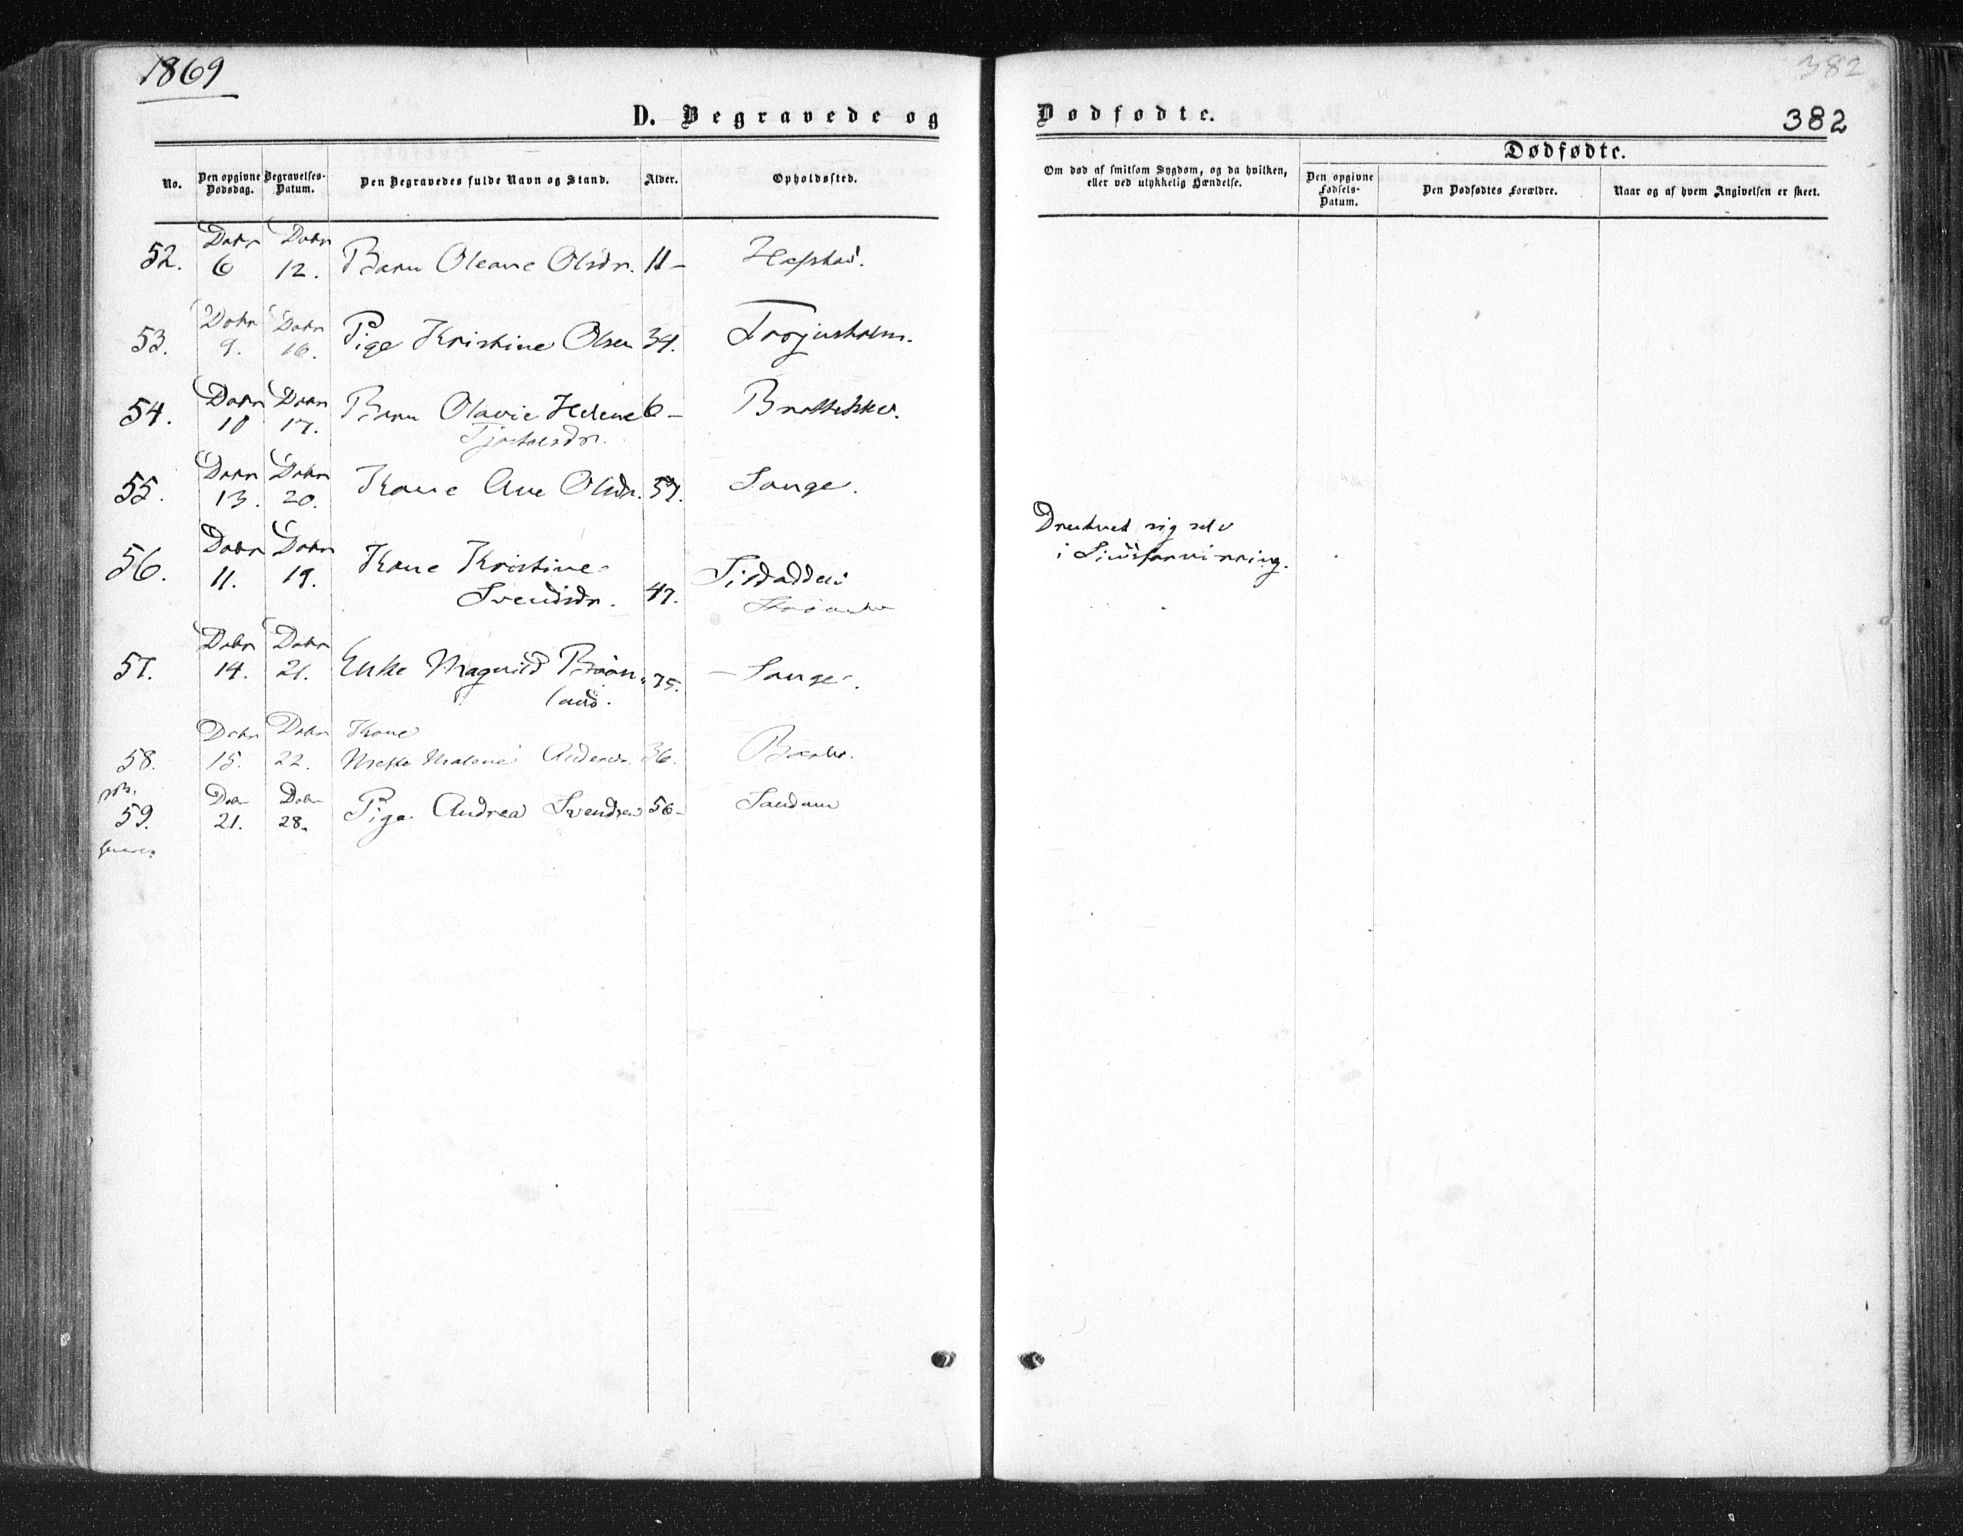 1869
382
D. Begravede og Dødfødte.
382
Dødfødte.
No.
Den opgivne Dødsdag.
Begravelses-Datum.
Den Begravedes fulde Navn og Stand.
Alder.
Opholdssted.
Om død af smitsom Sygdom, og da hvilken, eller ved ulykkelig Hændelse.
Den opgivne Fødsels-Datum.
Den Dødfødtes Forældre.
Naar og af hvem Angivelsen er skeet.
52. Dcbr 6 Dcbr 12. Barn Oleane Olsdr. 11-
53. Dcbr 9. Dcbr 16. Pige Kristine Olsen 34.
54. Dcbr 10 Dcbr 17. Barn Olavie Helene 6-
55. Dcbr 13. Dcbr 20. Kone Ane Olsdr. 57. Songe.
Druknet sig selv
i Sindsforvirring.
56. Dcbr 11. Dcbr 19. Kone Kristine
Svendsdr. 47.
57. Dcbr 14. Dcbr 21. Enke Magnild 75. - Songe.
58. Dcbr 15. Dcbr 22. Kone
Malene 36.
59. Dcbr 21. Dcbr 28. Pige Andrea Svendsen 56-